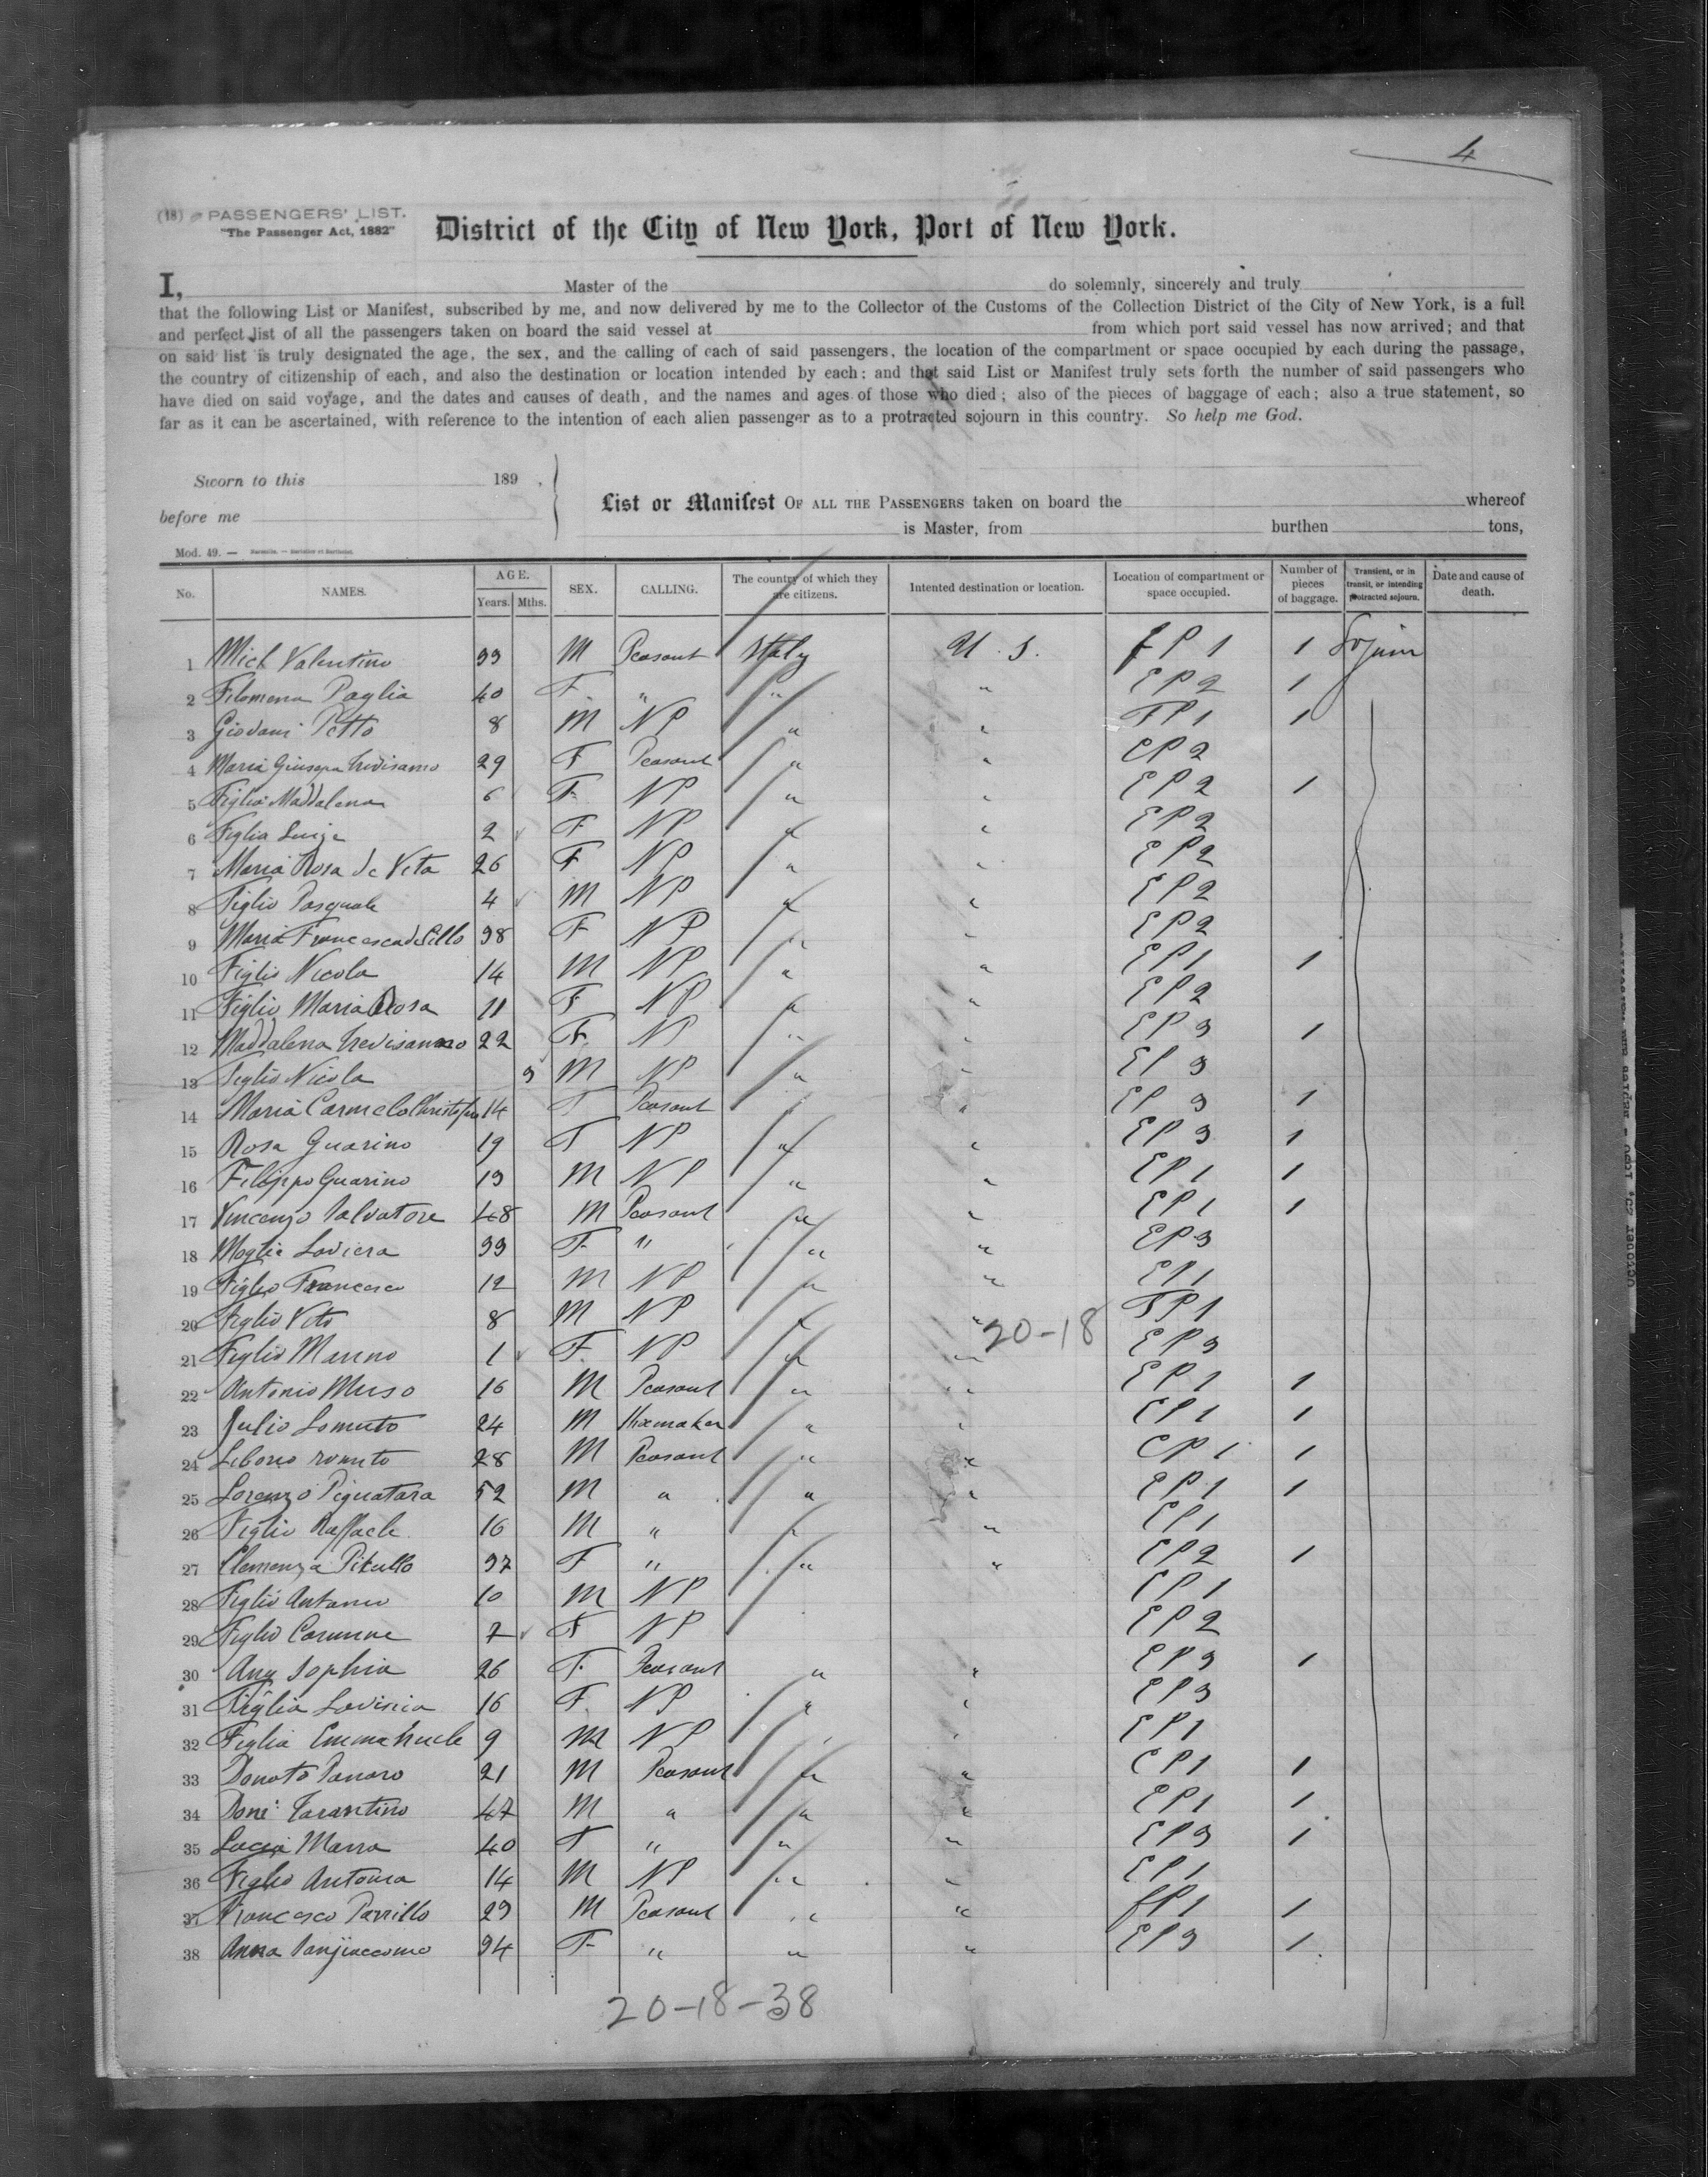 4
(18) PASSENGERS' LIST.
"The Passenger Act, 1882"
District of the City of New York, Port of New York.
I, Master of the do solemnly, sincerely and truly
that the following List or Manifest, subscribed by me, and now delivered by me to the Collector of the Customs of the Collection District of the City of New York, is a full
and perfect list of all the passengers taken on board the said vessel at from which port said vessel has now arrived; and that
on said list is truly designated the age, the sex, and the calling of each of said passengers, the location of the compartment or space occupied by each during the passage,
the country of citizenship of each, and also the destination or location intended by each: and that said List or Manifest truly sets forth the number of said passengers who
have died on said voyage, and the dates and causes of death, and the names and ages of those who died; also of the pieces of baggage of each; also a true statement, so
far as it can be ascertained, with reference to the intention of each alien passenger as to a protracted sojourn in this country. So help me God.
Sworn to this 189 .
before me
List or Manifest OF ALL THE PASSENGERS taken on board the whereof
is Master, from burthen tons,
Mod. 49. —
No. NAMES. AGE. Years. Mths. SEX. CALLING. The country of which they are citizens. Intented destination or location. Location of compartment or space occupied. Number of pieces of baggage. Transient, or in transit, or intending protracted sojourn. Date and cause of death.
1 Mich Valentino 33 M Peasant Italy U. S. EP1 1 Sojurn
2 Filomena Paglia 40 F " " " EP2 1
3 Giovani Petto 8 M NP " " FP1 1
4 Maria Giusepa Trevisanno 29 F Peasant " " EP2
5 Figlia Maddalena 6 F NP " " EP2 1
6 Figlia Luiza 2 F NP " " EP2
7 Maria Rosa de Vita 26 F NP " " EP2
8 Figlio Pasquale 4 M NP " " EP2
9 Maria Francesca 38 F NP " " EP2
10 Figlio Nicola 14 M NP " " EP1 1
11 Figlio Maria Rosa 11 F NP " " EP2
12 Maddalena Trevisanno 22 F NP " " EP3 1
13 Figlio Nicola 3 M NP " " EP3
14 Maria Carmela 14 F Peasant " " EP3 1
15 Rosa Guarino 19 F NP " " EP3 1
16 Filippo Guarino 13 M NP " " EP1 1
17 Vincenzo Salvatore 48 M Peasant " " EP1 1
18 Moglie Loviera 33 F " " " EP3
19 Figlio Francesco 12 M NP " " EP1
20 Figlio Vito 8 M NP " " FP1
20-18
21 Figlio Marino 1 F NP " " EP3
22 Antonio Muso 16 M Peasant " " EP1 1
23 Julio Lomuto 24 M Shoemaker " " EP1 1
24 Liborio 28 M Peasant " " EP1 1
25 Lorenzo Pignatara 52 M " " " EP1 1
26 Figlio Raffaele 16 M " " " EP1
27 Clemenza Pitullo 37 F " " " EP2 1
28 Figlio Antonio 10 M NP EP1
29 Figlio Carmine 7 F NP EP2
30 Ang Sophia 26 F Peasant " " EP3 1
31 Figlia Lavinia 16 F NP " " EP3
32 Figlia Emmanuele 9 M NP " " EP1
33 Donato Panaro 21 M Peasant " " EP1 1
34 Doni: Tarantino 47 M " " " EP1 1
35 Lucia Marra 40 F " " " EP3 1
36 Figlio Antonia 14 M NP " " EP1
37 Francesco Parrillo 23 M Peasant " " EP1 1
38 Anna 34 F " " " EP3 1
20-18-38